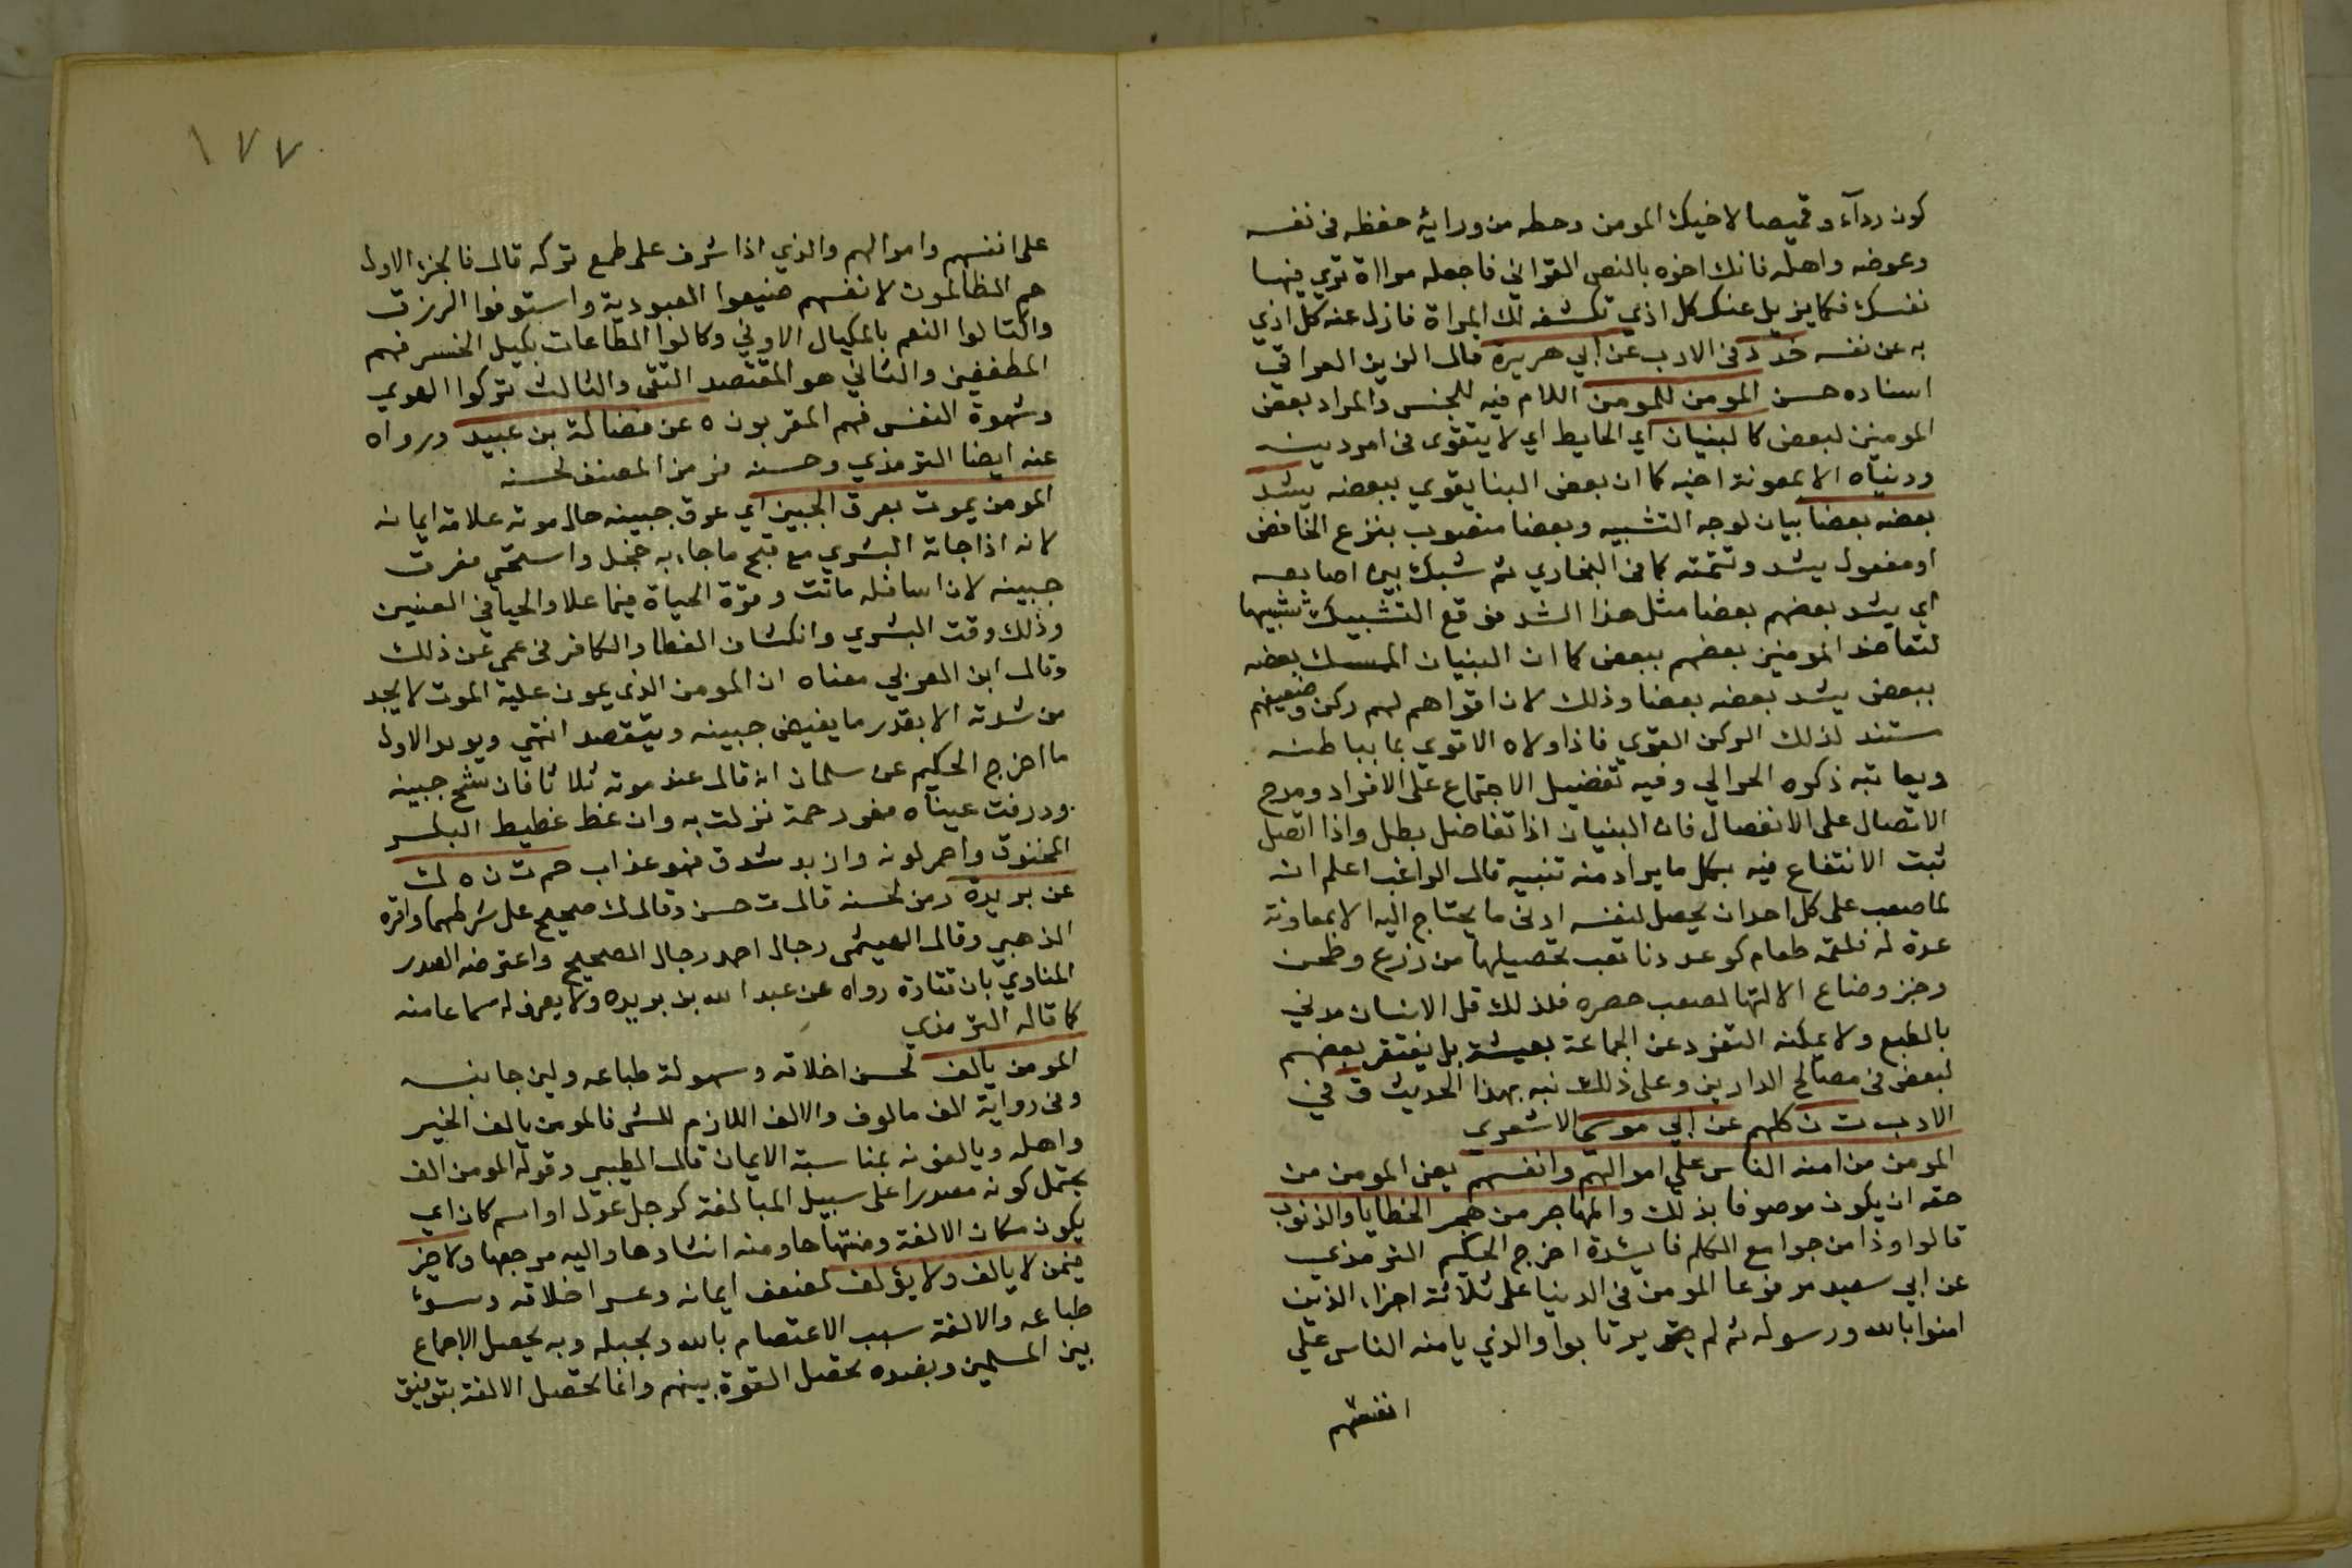 كون رداء وقميصا لاخيك المومن وحطه من ورايه حفظه فى نفسه
وعرضه واهله فانك اخوه بالنص القراني فاجعله مراة تري فيها
نفسك فكما يزيل عنك كل اذي تكشفه لك المراة فازل عنه كل اذي
به عن نفسه خد د فى الادب عن ابي هريرة قال الزين العراقي
اسناده حسن المومن للمومن اللام فيه للجنس والمراد بعض
المومنين لبعض كالبنيان اي الحايط اي لا يتقوى فى امر دينه
ودنياه الا بمعونة اخيه كما ان بعض البنا يقوي ببعضه يشد
بعضه بعضا بيان لوجه التشبيه وبعضا منصوب بنزع الخافض
او مفعول يشد وتتمته كما فى البخاري ثم شبك بين اصابعه
اي يشد بعضهم بعضا مثل هذا الشد فوقع التشبيك تشبيها
لتعاضد المومنين بعضهم ببعض كما ان البنيان الممسك بعضه
ببعض يشد بعضه بعضا وذلك لان اقواهم لهم ركن وضعيفهم
مستند لذلك الركن القوي فاذا ولاه الاقوي بما بباطنه
ويعا تبه ذكره الحرالي وفيه تفضيل الاجتماع على الانفراد ومدح
الاتصال على الانفصال فان البنيان اذا تفاضل بطل واذا اتصل
ثبت الانتفاع فيه بكل ما يراد منه تنبيه قال الراغب اعلم انه
لما صعب على كل احد ان يحصل لنفسه ادنى ما يحتاج اليه الا بمعاونة
عدة له فلقمة طعام لو عددنا تعب تحصيلها من زرع وطحن
وخبز وصناع الالتها لصعب حصره فلذلك قل الانسان مدني
بالطبع ولا يمكنه التفرد عن الجماعة بعيشة بل يفتقر بعضهم
لبعض فى مصالح الدارين وعلى ذلك نبه بهذا الحديث ق في
الادب ت ن كلهم عن ابي موسى الاشعري
المومن من امنه الناس علي اموالهم وانفسهم يعنى المومن من
حقه ان يكون موصوفا بذلك والمهاجر من هجر الخطايا والذنوب
قالوا وذا من جوامع الكلم فايدة اخرج الحكيم الترمذي
عن ابي سعيد مرفوعا المومن فى الدنيا على ثلاثة اجزاء الذين
امنوا بالله ورسوله ثم لم يرتابوا والذي يامنه الناس علي
انفسهم
١٧٧
على انفسهم واموالهم والذي اذا شرف على طمع تركه قال فالجزء الاول
هم الظالمون لانفسهم ضيعوا العبودية واستوفوا الرزق
واكتالوا النعم بالمكيال الاوفي وكالوا الطاعات بكيل الخسر فهم
المطففين والثاني هو المقتصد التقى والثالث تركوا الهوي
وشهوة النفس فهم المقربون ه عن فضالة بن عبيد ورواه
عنه ايضا الترمذي وحسنه فرمز المصنف لحسنه
المومن يموت بعرق الجبين اي عرق جبينه حال موته علامة ايمانه
لانه اذا جاته البشري مع قبح ما جاء به خجل واستحى فعرق
جبينه لان اسافله ماتت وقوة الحياة فيما علا والحيا فى العينين
وذلك وقت البشري وانكشاف الغطا والكافر فى عمي عن ذلك
وقال ابن العربي معناه ان المومن الذى يهون عليه الموت لا يجد
من شدته الا بقدر ما يفيض جبينه ويتفصد انتهي ويويد الاول
ما اخرج الحكيم عن سلمان انه قال عند موته ثلاثا فان رشح جبينه
وذرفت عيناه فهى رحمة نزلت به وان غط غطيط البكر
المخنوق واحمر لونه وازبد شدق فهو عذاب حم ت ن ه ك
عن بريدة رمز لحسنه قال ت حسن وقال ك صحيح على شرطهما واقره
الذهبي وقال الهيثمى رجال احمد رجال الصحيح واعترضه الصدر
المناوي بان قتادة رواه عن عبد الله بن بريده ولا يعرف له سماعا منه
كما قاله الترمذي
المومن يالف لحسن اخلاقه وسهولة طباعه ولين جانبه
وفى رواية الف مالوف والالف اللازم للشى فالمومن يالف الخير
واهله ويالفونه بمناسبة الايمان قال الطيبي وقوله المومن الف
يحتمل كونه مصدرا على سبيل المبالغة كرجل عدل او اسم كان اي
يكون مكان الالفة ومنتهاها ومنه انشادها واليه مرجعها ولا خير
فيمن لا يالف ولا يؤلف لضعف ايمانه وعسر اخلاقه وسوء
طباعه والالفة سبب الاعتصام بالله وبحبله وبه يحصل الاجماع
بين المسلمين وبضده تحصل القوة بينهم وانما تحصل الالفة بتوفيق